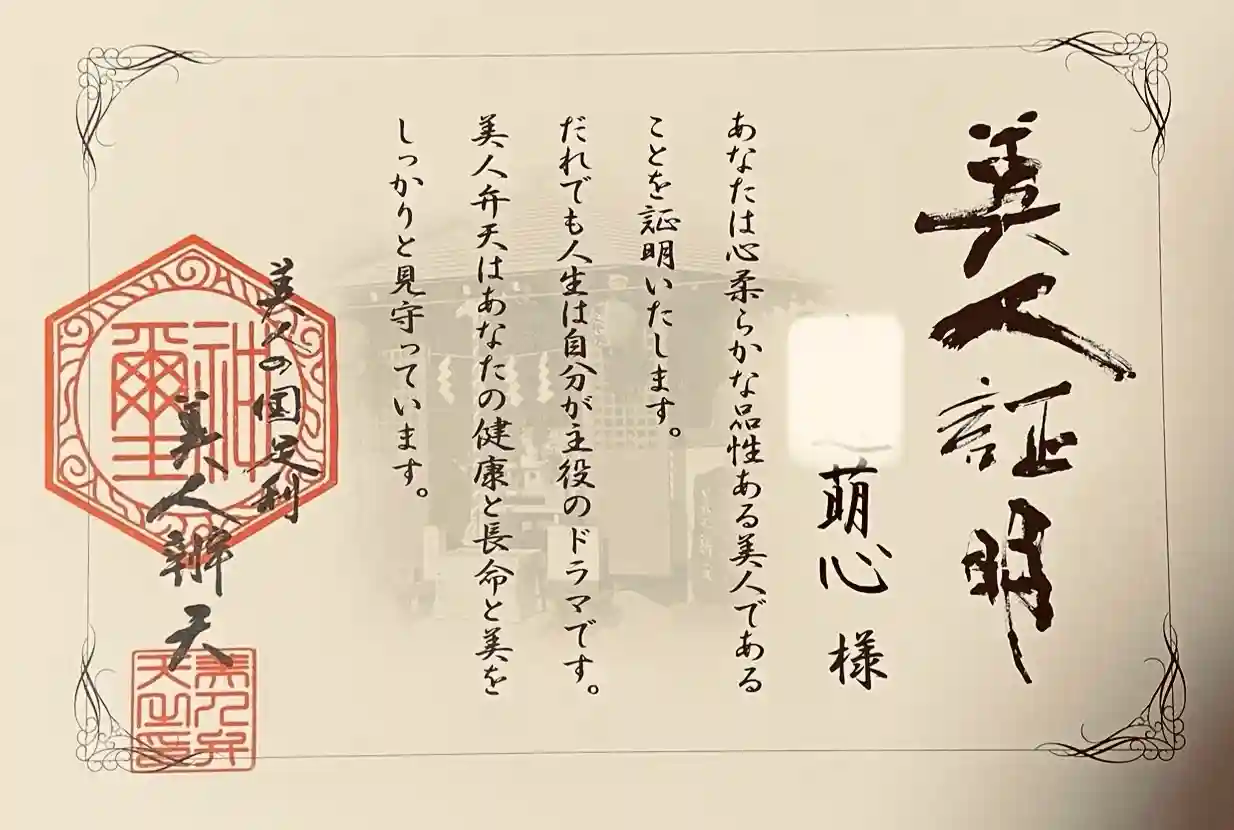 美人証明
萌心 様
あなたは心柔らかな品性ある美人である
ことを証明いたします。
だれでも人生は自分が主役のドラマです。
美人弁天はあなたの健康と長命と美を
しっかりと見守っています。
美人の国足利
美人辨天
神璽
美人弁
天之印